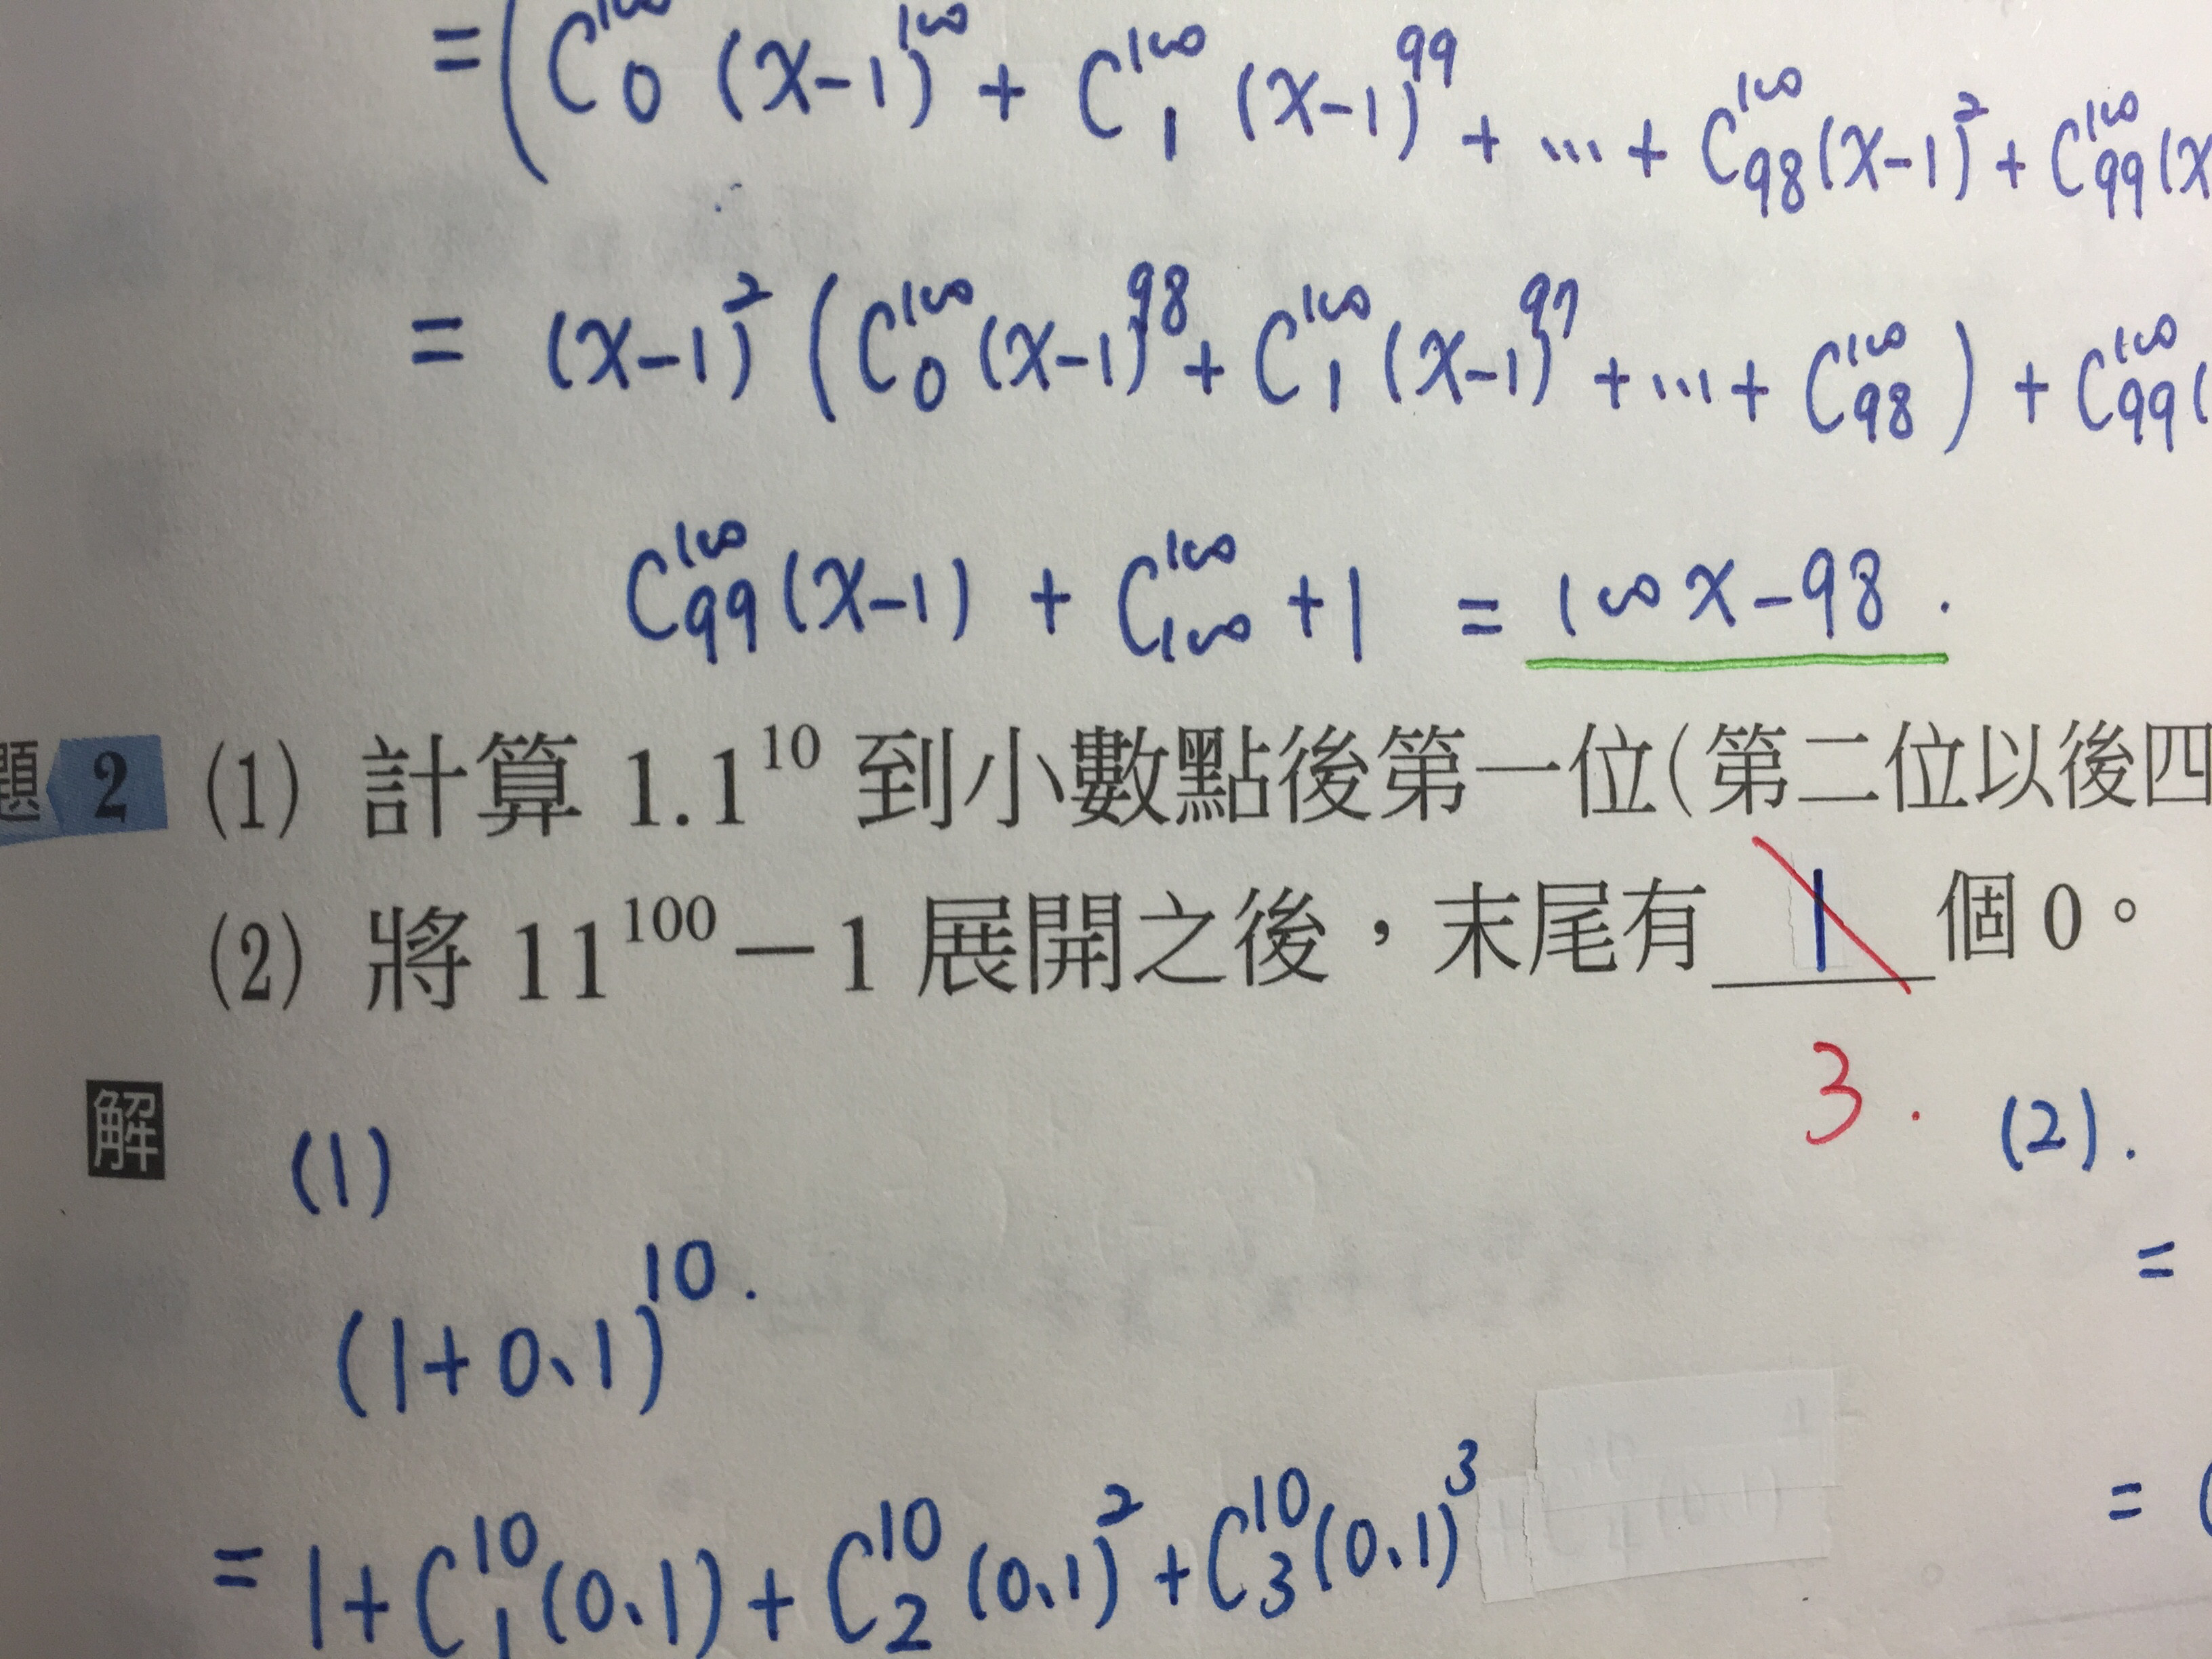 =(C₀¹⁰⁰(x-1)¹⁰⁰+C₁¹⁰⁰(x-1)⁹⁹+…+C₉₈¹⁰⁰(x-1)²+C₉₉¹⁰⁰(x
=(x-1)²(C₀¹⁰⁰(x-1)⁹⁸+C₁¹⁰⁰(x-1)⁹⁷+…+C₉₈¹⁰⁰)+C₉₉¹⁰⁰(
C₉₉¹⁰⁰(x-1)+C₁₀₀¹⁰⁰+1=100x-98.
題 2 (1) 計算 1.1¹⁰ 到小數點後第一位(第二位以後四
(2) 將 11¹⁰⁰-1 展開之後,末尾有 1 個0。
3.
解 (1)
(2).
(1+0.1)¹⁰.
=
=1+C₁¹⁰(0.1)+C₂¹⁰(0.1)²+C₃¹⁰(0.1)³
=(